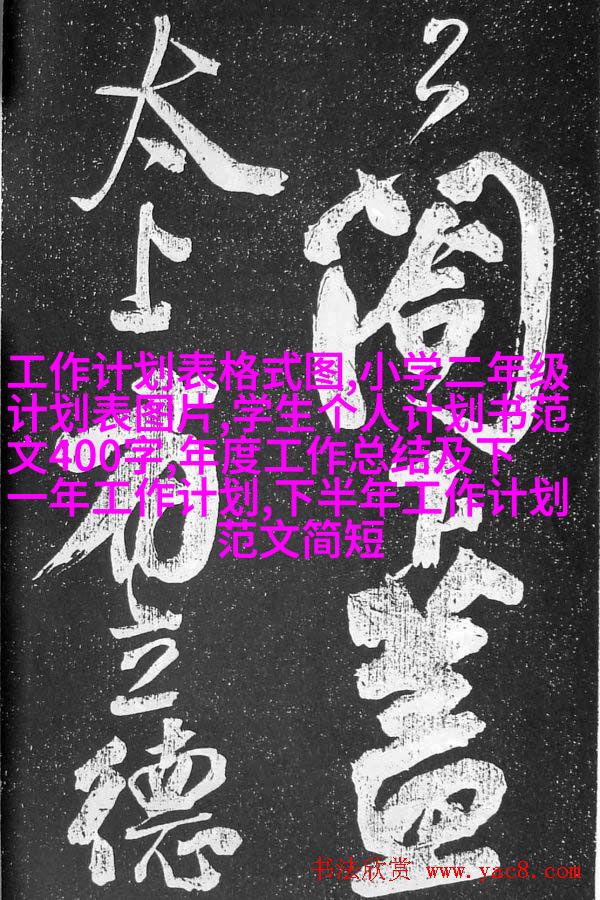 公閣下盖
太上有立德
工作计划表格式图,小学二年级
计划表图片,学生个人计划书范
文400字,年度工作总结及下
一年工作计划,下半年工作计划
范文简短
书法欣赏 www.yac8.com